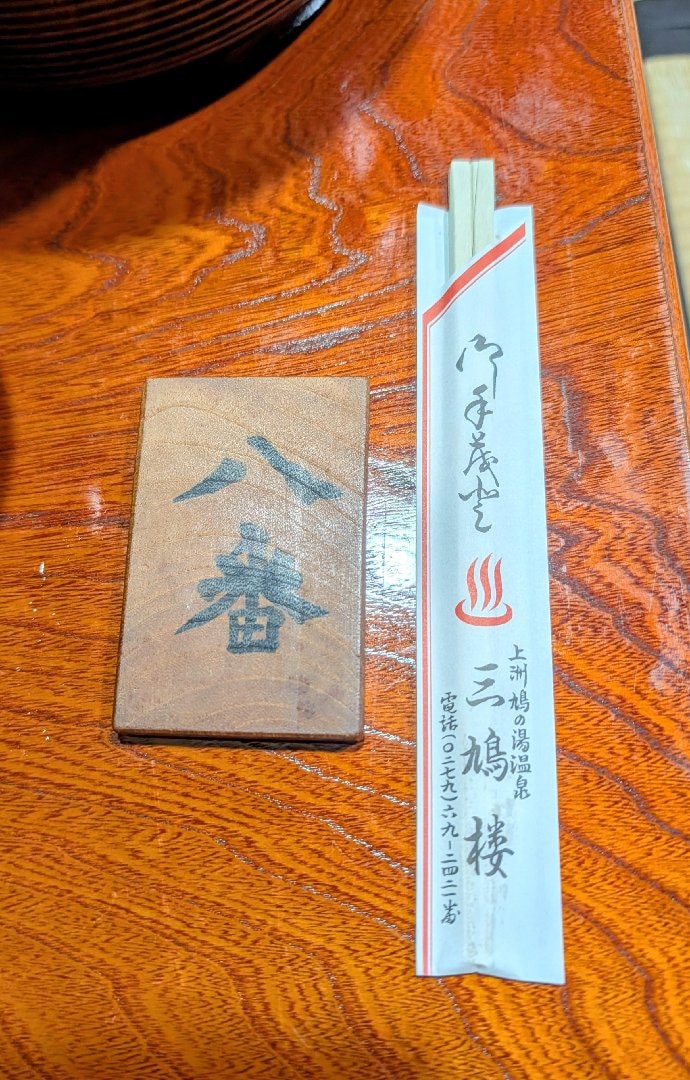 八番
御手茂登
上洲鳩の湯温泉
三鳩楼
電話(〇二七九)六九-二四二一番